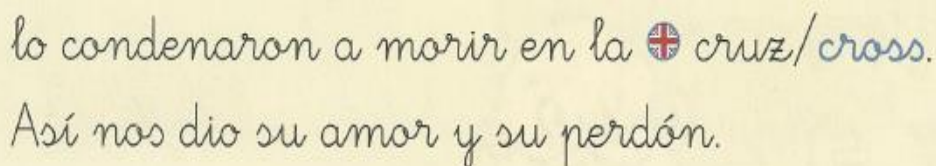 lo condenaron a morir en la cruz/cross.
Así nos dio su amor y su perdón.